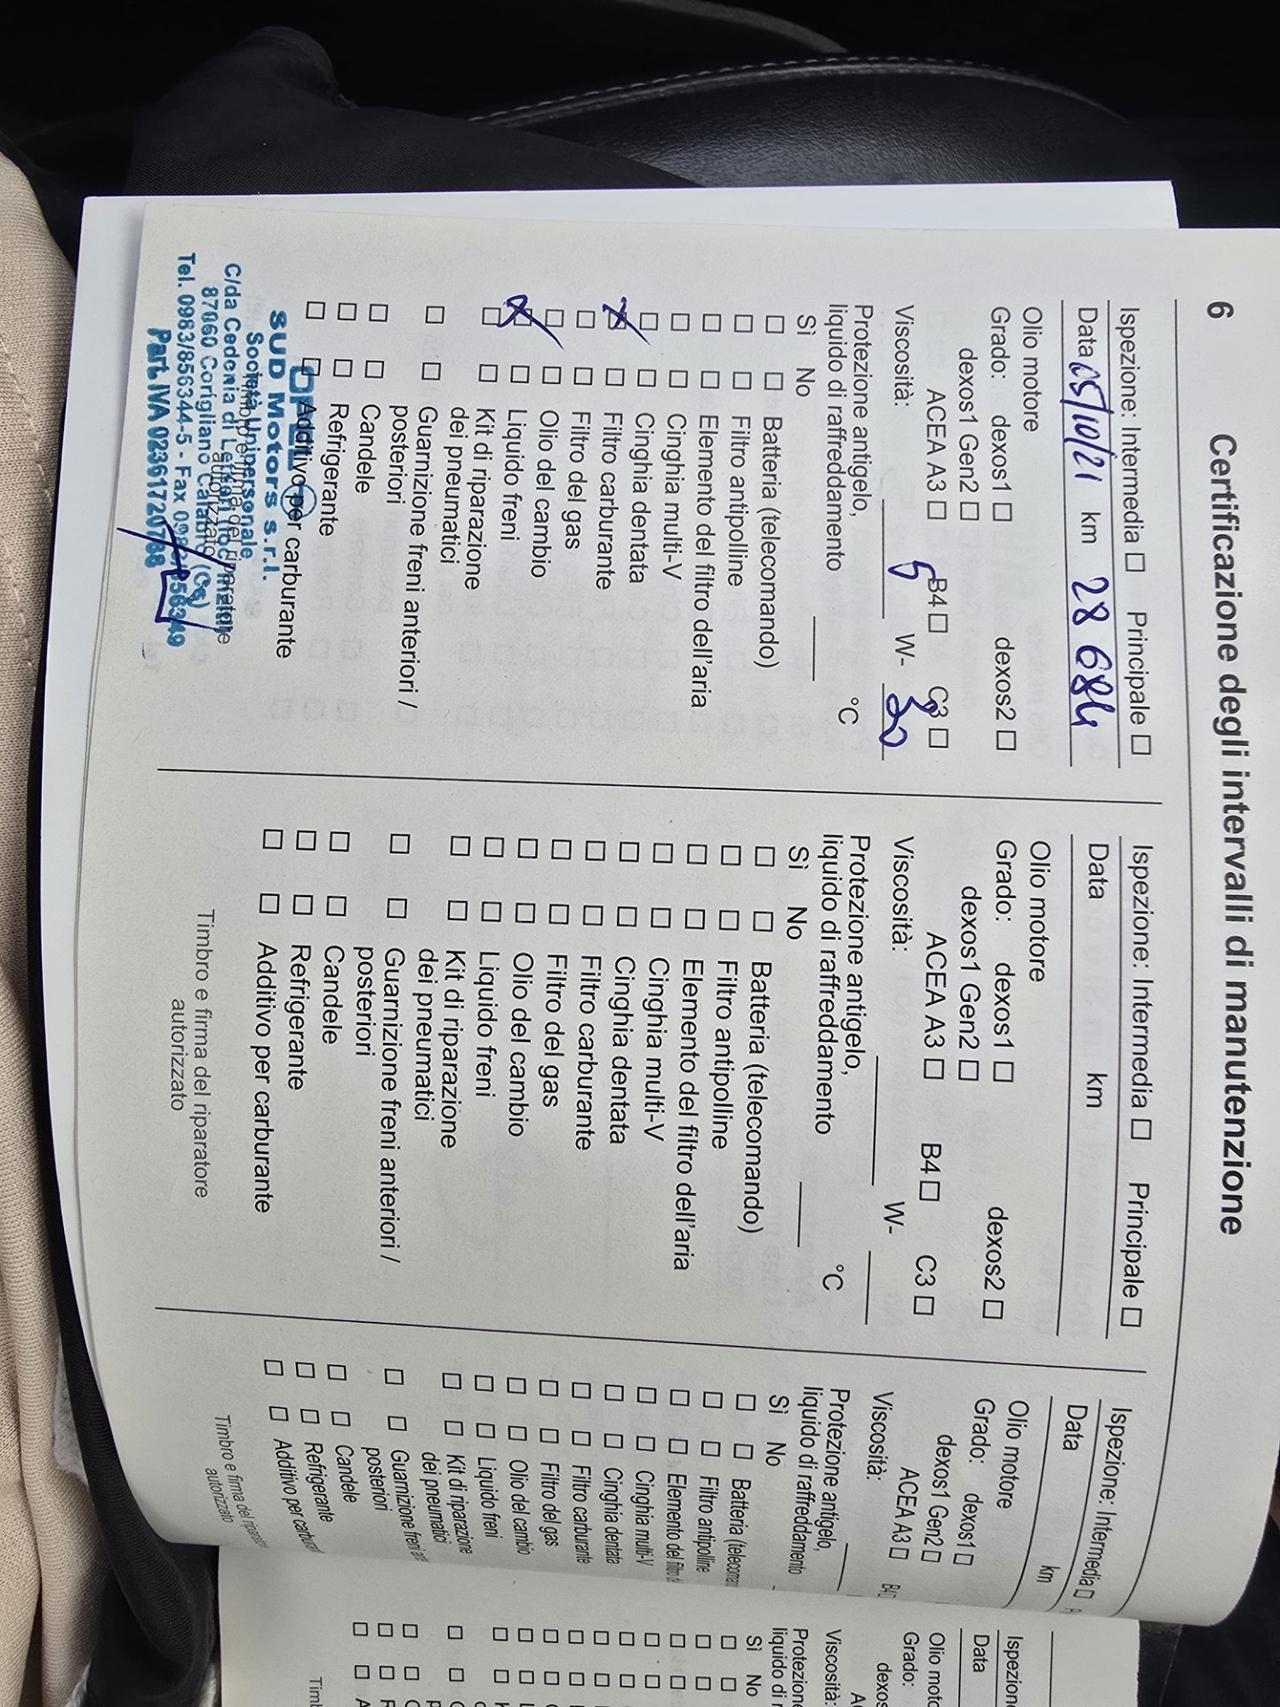 6 Certificazione degli intervalli di manutenzione
Ispezione: Intermedia ☐ Principale ☐
Data 05/10/21 km 28 684
Olio motore
Grado: dexos1 ☐ dexos2 ☐
dexos1 Gen2 ☐
ACEA A3 ☐ B4 ☐ C3 ☐
Viscosità: 5 W- 30
Protezione antigelo,
liquido di raffreddamento °C
Sì No
☐ ☐ Batteria (telecomando)
☐ ☐ Filtro antipolline
☐ ☐ Elemento del filtro dell'aria
☐ ☐ Cinghia multi-V
☐ ☐ Cinghia dentata
☒ ☐ Filtro carburante
☐ ☐ Filtro del gas
☐ ☐ Olio del cambio
☒ ☐ Liquido freni
☐ ☐ Kit di riparazione
dei pneumatici
☐ ☐ Guarnizione freni anteriori /
posteriori
☐ ☐ Candele
☐ ☐ Refrigerante
☐ ☐ Additivo per carburante
OPEL
SUD Motors s.r.l.
Società Unipersonale
C/da Cedonia di
87060 Corigliano Calabro (Cs)
Tel. 0983/856344-5 - Fax
Part. IVA 02361720788
Ispezione: Intermedia ☐ Principale ☐
Data km
Olio motore
Grado: dexos1 ☐ dexos2 ☐
dexos1 Gen2 ☐
ACEA A3 ☐ B4 ☐ C3 ☐
Viscosità: W-
Protezione antigelo,
liquido di raffreddamento °C
Sì No
☐ ☐ Batteria (telecomando)
☐ ☐ Filtro antipolline
☐ ☐ Elemento del filtro dell'aria
☐ ☐ Cinghia multi-V
☐ ☐ Cinghia dentata
☐ ☐ Filtro carburante
☐ ☐ Filtro del gas
☐ ☐ Olio del cambio
☐ ☐ Liquido freni
☐ ☐ Kit di riparazione
dei pneumatici
☐ ☐ Guarnizione freni anteriori /
posteriori
☐ ☐ Candele
☐ ☐ Refrigerante
☐ ☐ Additivo per carburante
Timbro e firma del riparatore
autorizzato
Ispezione: Intermedia ☐
Data km
Olio motore
Grado: dexos1 ☐
dexos1 Gen2 ☐
ACEA A3 ☐ B4
Viscosità:
Protezione antigelo,
liquido di raffreddamento
Sì No
☐ ☐ Batteria
☐ ☐ Filtro antipolline
☐ ☐ Elemento del
☐ ☐ Cinghia multi-V
☐ ☐ Cinghia dentata
☐ ☐ Filtro carburante
☐ ☐ Filtro del gas
☐ ☐ Olio del cambio
☐ ☐ Liquido freni
☐ ☐ Kit di riparazione
dei pneumatici
☐ ☐ Guarnizione freni
posteriori
☐ ☐ Candele
☐ ☐ Refrigerante
☐ ☐ Additivo per
Timbro e firma del
autorizzato
Data
Grado:
Viscosità:
liquido di
Sì No